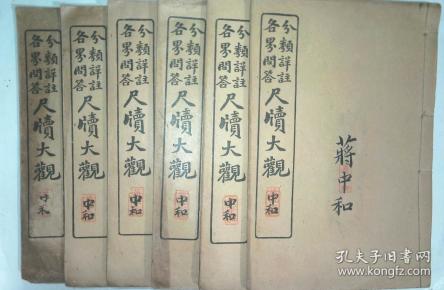 分類詳註
各界問答
尺牘大觀
中和
蔣中和
分類詳註
各界問答
尺牘大觀
中和
分類詳註
各界問答
尺牘大觀
中和
分類詳註
各界問答
尺牘大觀
中和
分類詳註
各界問答
尺牘大觀
中和
分類詳註
各界問答
尺牘大觀
中和
孔夫子旧书网
www.kongfz.com